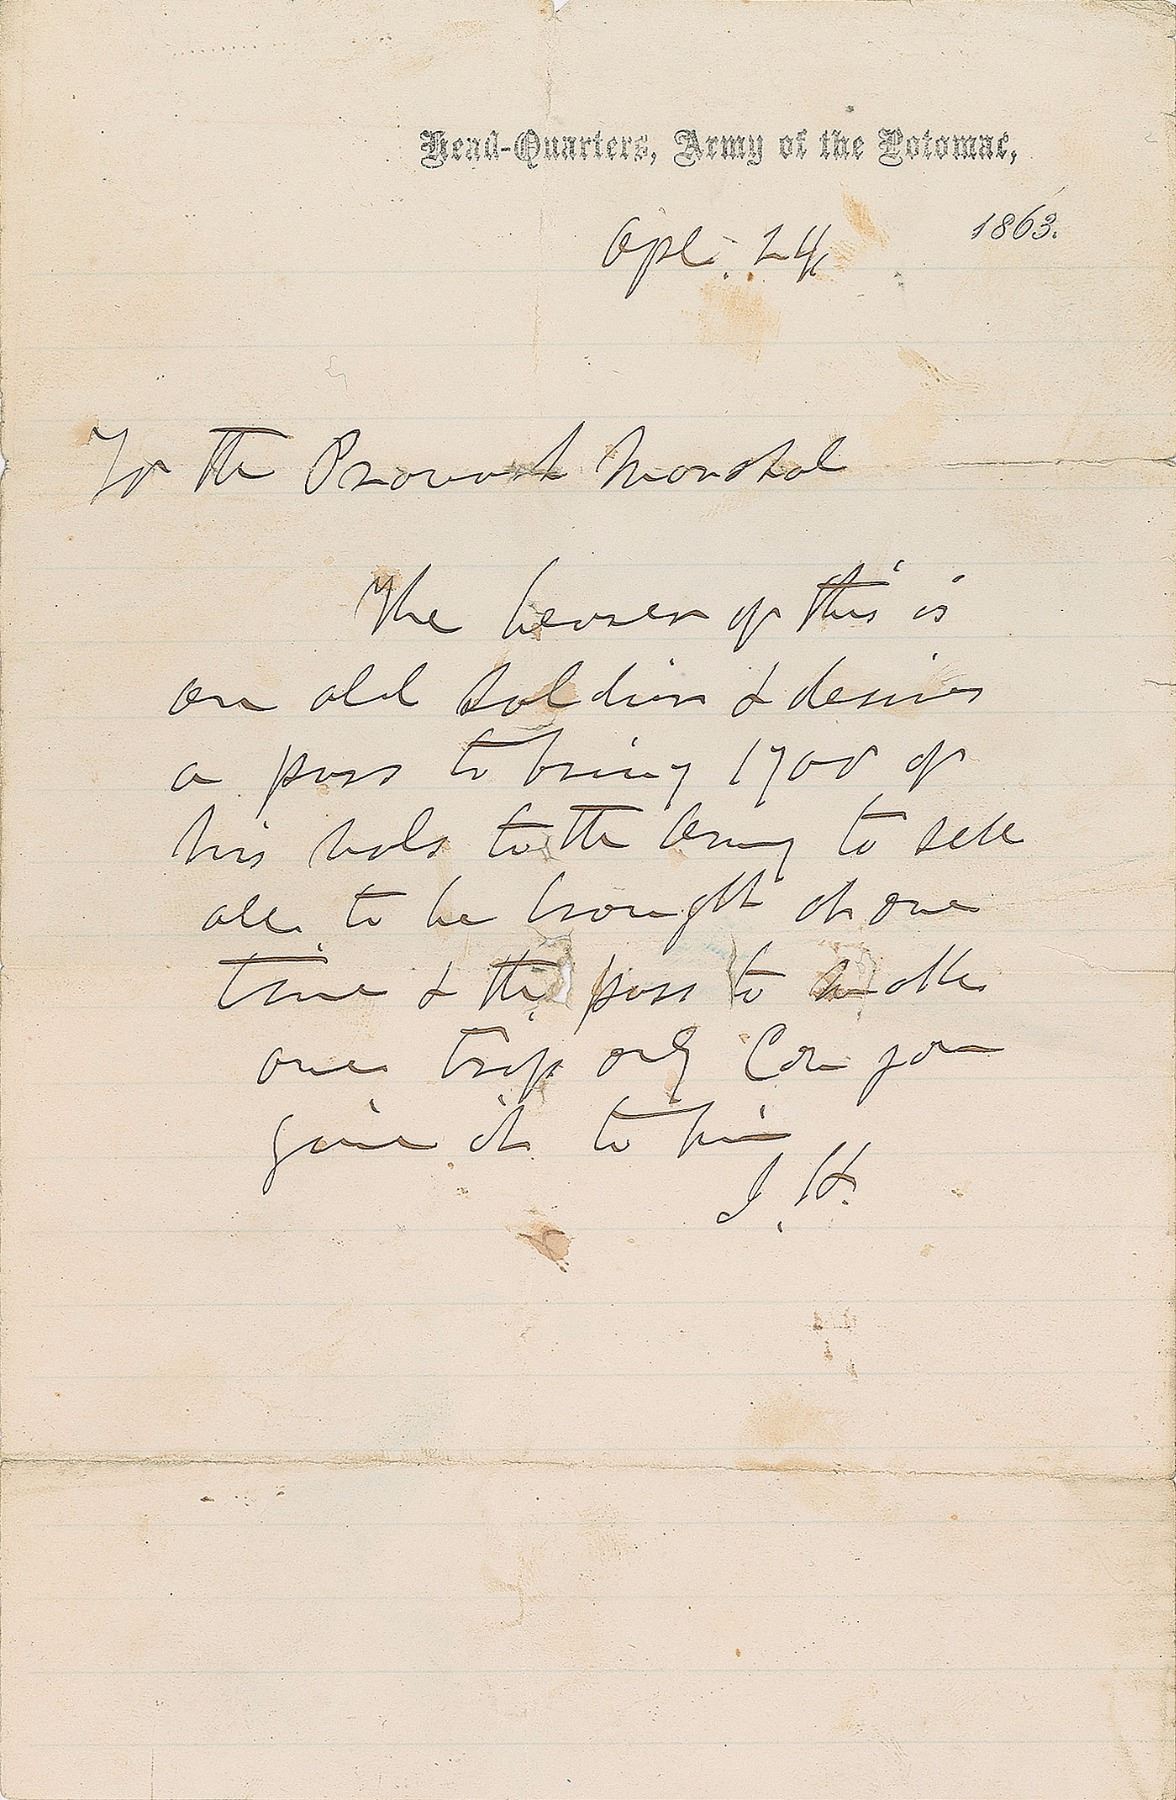 Head-Quarters, Army of the Potomac,
Apl. 24 1863.
To the Provost Marshal
The bearer of this is
an old soldier & desires
a pass to bring 1700 of
his to the Army to sell
all to be brought at one
time & the pass to make
one trip only Can you
give it to him
J. H.